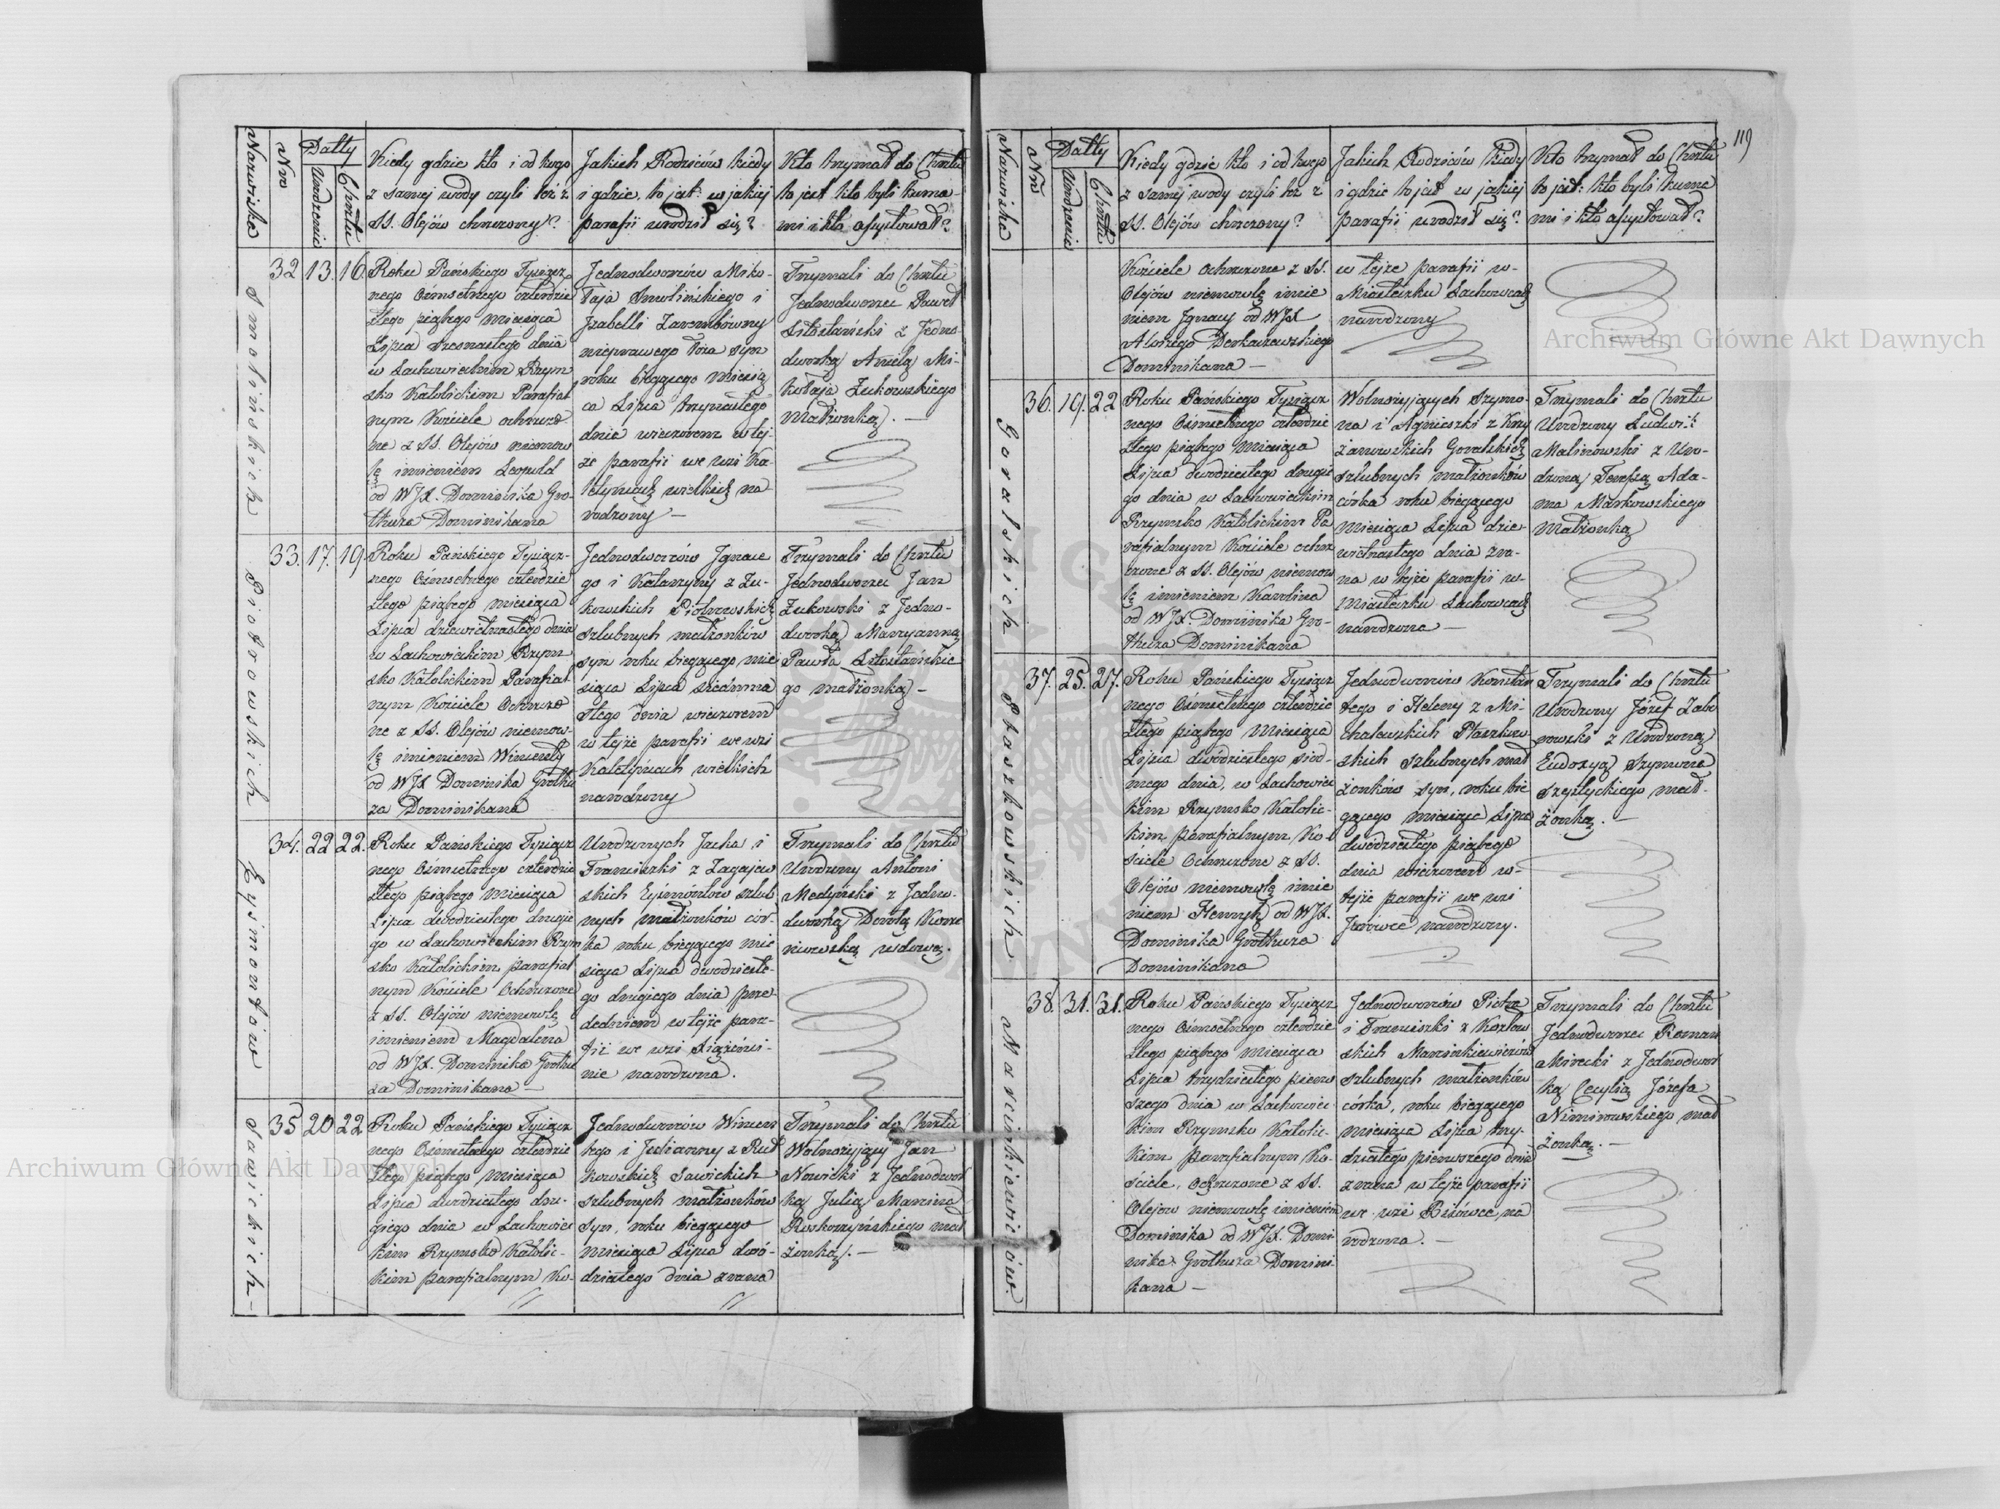 Nazwiska
Nro
Datty
Urodzenia
Chrztu
Kiedy gdzie kto i od kogo
z samej wody czyli też z
SS. Olejów chrzczony?
Jakich Rodziców kiedy
i gdzie, to jest: w jakiej
parafii urodził się?
Kto trzymał do Chrztu
to jest kto byli kuma-
mi i kto assystował?
Smolińskich
32
13.
16.
Roku Pańskiego Tysiącz
nego Ośmsetnego czterdzie
stego piątego miesiąca
Lipca szesnastego dnia
w Lachowieckim Rzym
sko Katolickim Parafial
nym Kościele ochrzczo
ne z SS. Olejów niemow
lę imieniem Leopold
od WJX. Dominika Gro-
thuza Dominikana
Jednodworców Miko-
łaja Smolińskiego i
Izabelli Zarembówny
nieprawego łoża syn
roku bieżącego miesią
ca Lipca trzynastego
dnia wieczorem w tej-
że parafii we wsi Ka-
łetyńcach wielkich na-
rodzony —
Trzymali do Chrztu
Jednodworzec Paweł
z Jedno-
dworką Anielą Mi-
kołaja Żukowskiego
Małżonką. —
Piotrowskich
33.
17.
19.
Roku Pańskiego Tysiącz-
nego Ośmsetnego czterdzie
stego piątego miesiąca
Lipca dziewiętnastego dnia
w Lachowieckim Rzym
sko Katolickim Parafial
nym Kościele Ochrzczo
ne z SS. Olejów niemow-
lę imieniem Wincenty
od WJX Dominika Grothu
za Dominikana
Jednodworców Ignace
go i Katarzyny z Żu-
kowskich Piotrowskich
szlubnych małżonków
syn roku bieżącego mie
siąca Lipca siedmna
stego dnia wieczorem
w tejże parafii we wsi
Kałetyńcach wielkich
narodzony
Trzymali do Chrztu
Jednodworzec Jan
Żukowski z Jedno-
dworką Maryanną
Pawła
go małżonką —
Eysmontów
34.
22
22.
Roku Pańskiego Tysiącz
nego Ośmsetnego czterdzie
stego piątego miesiąca
Lipca dwódziestego drugie
go w Lachowieckim Rzym
sko Katolickim parafial
nym Kościele Ochrzczone
z SS. Olejów niemowlę
imieniem Magdalena
od WJX. Dominika Grothu
za Dominikana —
Urodzonych Jacka i
Franciszki z Zagajew
skich Eysmontów szlub
nych małżonków cór-
ka roku bieżącego mie
siąca Lipca dwódzieste-
go drugiego dnia prze-
dedniem w tejże para-
fii we wsi
nie narodzona.
Trzymali do Chrztu
Urodzony Antoni
Medyński z Jedno-
dworką Dorotą Korze
niowską wdową.
Sawickich —
35
20
22
Roku Pańskiego Tysiącz
nego Ośmsetnego czterdzie
stego piątego miesiąca
Lipca dwódziestego dru-
giego dnia w Lachowiec
kim Rzymsko Katolic-
kim parafialnym Ko-
Jednodworców Wincen
tego i Julianny z Rut
kowskich Sawickich
szlubnych małżonków
syn, roku bieżącego
miesiąca Lipca dwó-
dziestego dnia zrana
Trzymali do Chrztu
Wolnożyjący Jan
Nowicki z Jednodwor
ką Julią Marcina
małżonką. —
119
Nazwiska
Nro
Datty
Urodzenia
Chrztu
Kiedy gdzie kto i od kogo
z samej wody czyli też z
SS. Olejów chrzczony?
Jakich Rodziców kiedy
i gdzie to jest w jakiej
parafii urodził się?
Kto trzymał do Chrztu
to jest: kto byli kuma
mi i kto assystował?
Kościele ochrzczone z SS.
Olejów niemowlę imie
niem Ignacy od WJX
Alojzego Derkaczewskiego
Dominikana —
w tejże parafii w-
Miasteczku Lachowcach
narodzony
Goralskich
36.
19.
22
Roku Pańskiego Tysiącz
nego Ośmsetnego czterdzie
stego piątego miesiąca
Lipca dwódziestego drugie
go dnia w Lachowieckim
Rzymsko Katolickim Pa
rafialnym Kościele ochrz
czone z SS. Olejów niemow
lę imieniem Karolina
od WJX. Dominika Gro-
thuza Dominikana
Wolnożyjących Szymo-
na i Agnieszki z Krzy
żanowskich Goralskich
szlubnych małżonków
córka roku bieżącego
miesiąca Lipca dzie-
więtnastego dnia zra-
na w tejże parafii w-
Miasteczku Lachowcach
narodzona —
Trzymali do Chrztu
Urodzony Ludwik
Malinowski z Uro-
dzoną Teressą Ada-
ma Markowskiego
Małżonką
Ptaszkowskich
37.
25.
27.
Roku Pańskiego Tysiącz
nego Ośmsetnego czterdzie
stego piątego miesiąca
Lipca dwódziestego siód-
mego dnia, w Lachowiec
kim Rzymsko Katolic-
kim parafialnym Ko-
ściele Ochrzczone z SS.
Olejów niemowlę imie
niem Henryk od WJX.
Dominika Grothuza
Dominikana
Jednodworców Konstan
tego i Heleny z Mi-
chalewskich Ptaszkow
skich szlubnych mał
żonków syn, roku bie
żącego miesiąca Lipca
dwódziestego piątego
dnia wieczorem w-
tejże parafii we wsi
Jurówce narodzony.
Trzymali do Chrztu
Urodzony Józef
z Urodzoną
Eudozyą Szymona
mał-
żonką. —
Marcinkiewiczów.
38.
31.
31.
Roku Pańskiego Tysiącz
nego Ośmsetnego czterdzie
stego piątego miesiąca
Lipca trzydziestego pierw
szego dnia w Lachowiec
kim Rzymsko Katolic-
kim parafialnym Ko-
ściele, Ochrzczone z SS.
Olejów niemowlę imieniem
Dominika od WJX. Domi
nika Grothuza Domini
kana —
Jednodworców Piotra
i Franciszki z Kozłow
skich Marcinkiewiczów
szlubnych małżonków
córka, roku bieżącego
miesiąca Lipca trzy-
dziestego pierwszego dnia
zrana w tejże parafii
we wsi Bisówce, na
rodzona. —
Trzymali do Chrztu
Jednodworzec Roman
Mirecki z Jednodwor
ką Cecylią Józefa
Nimirowskiego mał
żonką. —
Archiwum Główne Akt Dawnych
Archiwum Główne Akt Dawnych